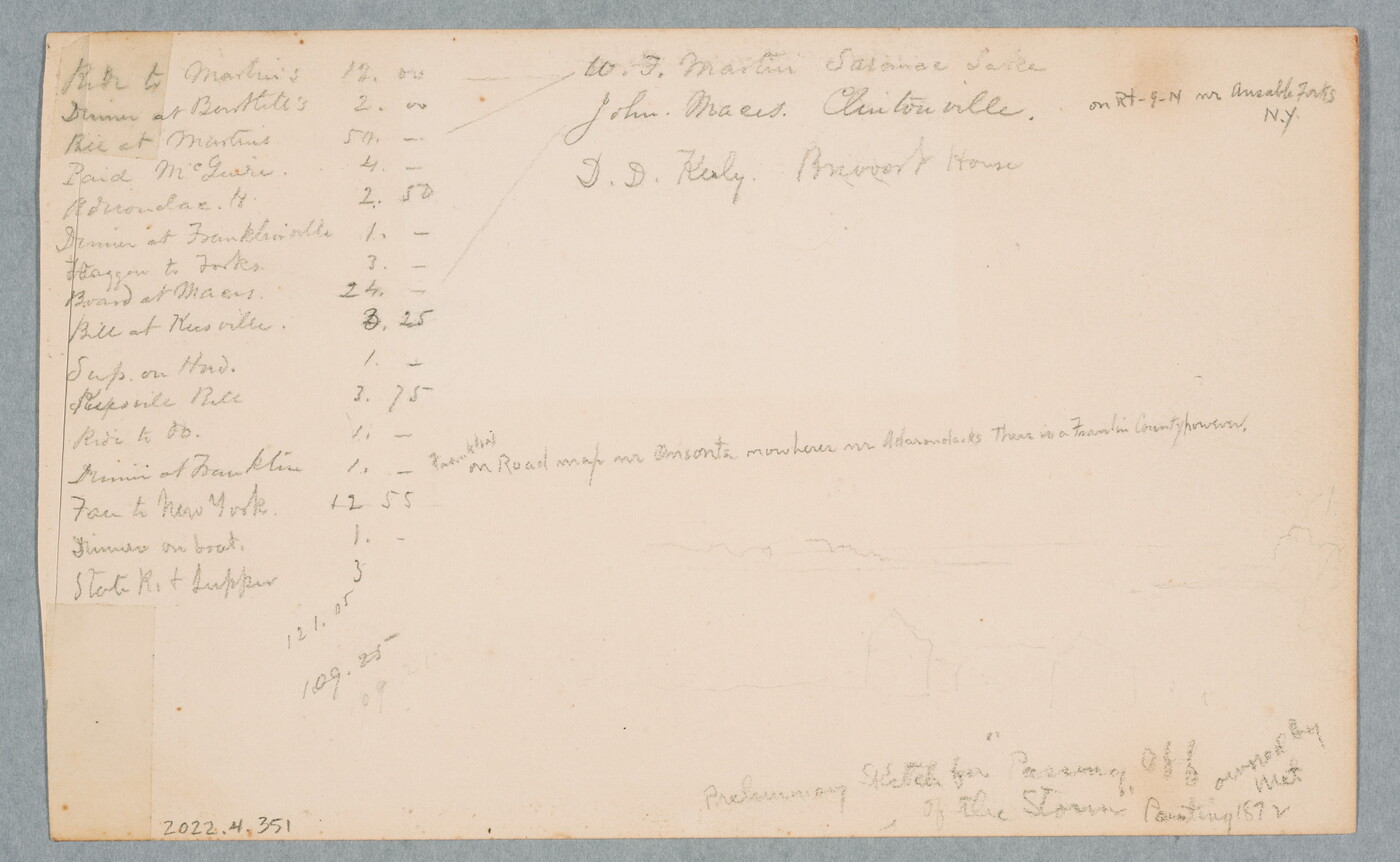 Ride to Martin's 12. 00
Dinner at Bartlett's 2. 00
Bill at Martins 50. —
Paid McGuire. 4. —
Adirondac. H. 2. 50
Dinner at Franklinville 1. —
Waggon to Forks. 3. —
Board at Maces. 24. —
Bill at Keesville. 3. 25
Sup. on Hud. 1. —
Bill 3. 75
Ride to Do. 1. —
Dinner at Franklin 1. —
Fare to New York. 12 55
Dinner on boat. 1. -
State R. + Supper 3
121. 05
109. 25
09
W. F. Martin Saranac Lake
John. Maces. Clintonville.
on Rt-9-N nr Ausable Forks
N.Y.
D. D. Kealy. Brevoort House
on Road map nr Oneonta nowhere nr Adarondacks There is a Franklin County however.
Preliminary Sketch for "Passing Off
of the Storm" Painting 1872
owned by
Met
2022.4.351